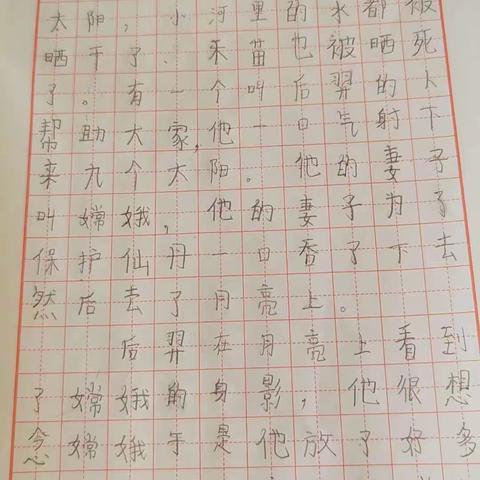 太阳，小河里的水都被
晒干了、禾苗也被晒死
了。有一个叫后羿的人
帮助大家，他一口气射下
来九个太阳。他的妻子
叫嫦娥，他的妻子为了
保护仙丹一口吞了下去
然后去了月亮上。
后羿在月亮上看到
了嫦娥的身影，他很想
念嫦娥于是他放了好多